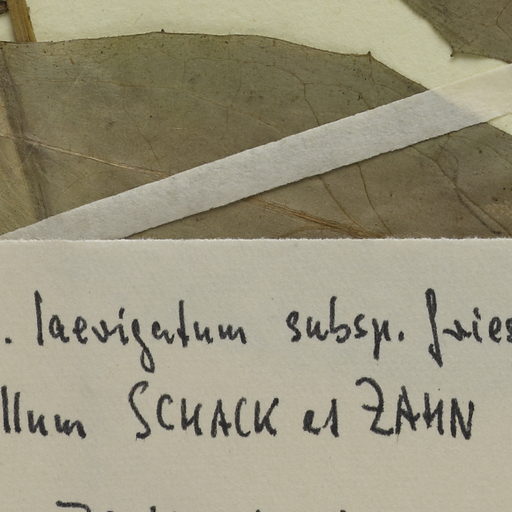 . laevigatum subsp. fries
llum SCHACK et ZAHN